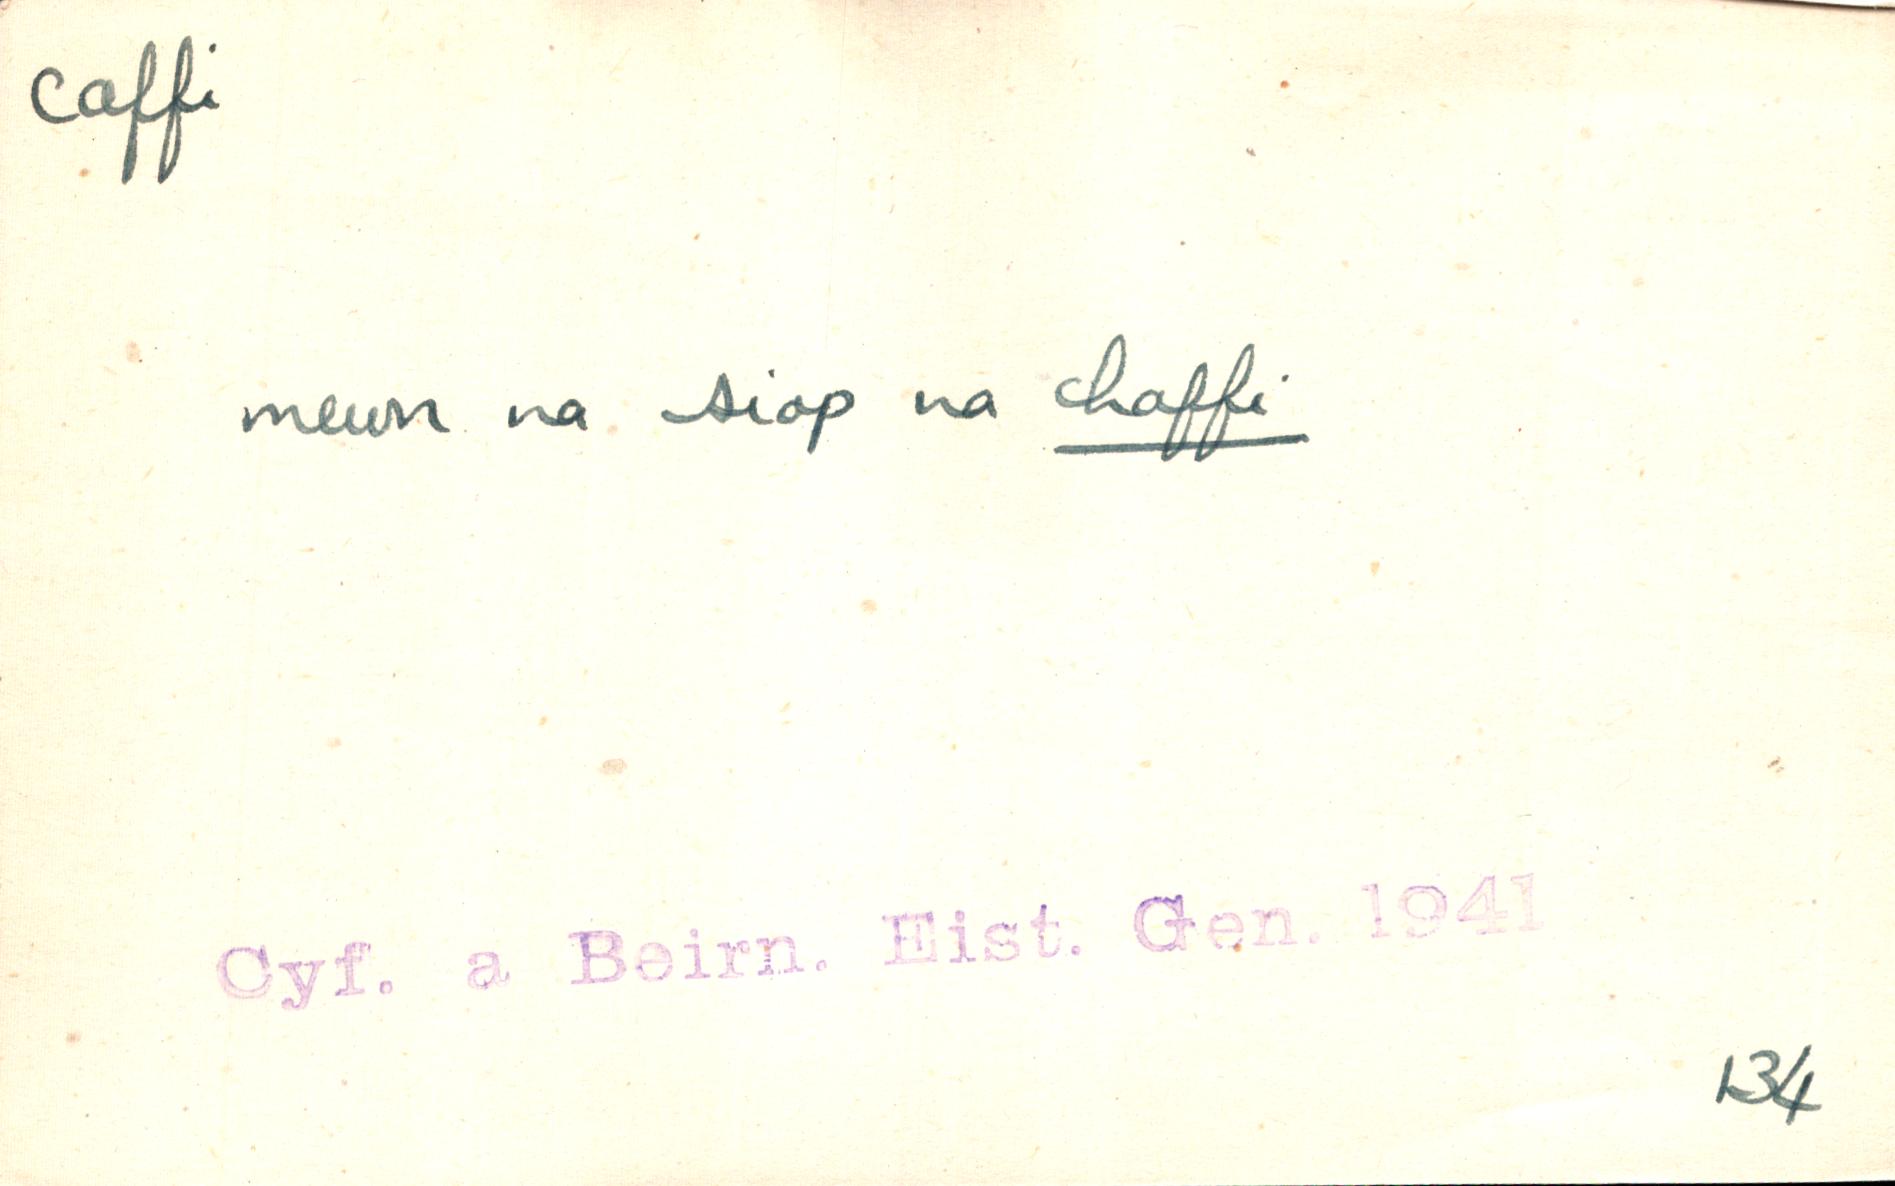 caffi
mewn na siop na chaffi
Cyf. a Beirn. Eist. Gen. 1941
134